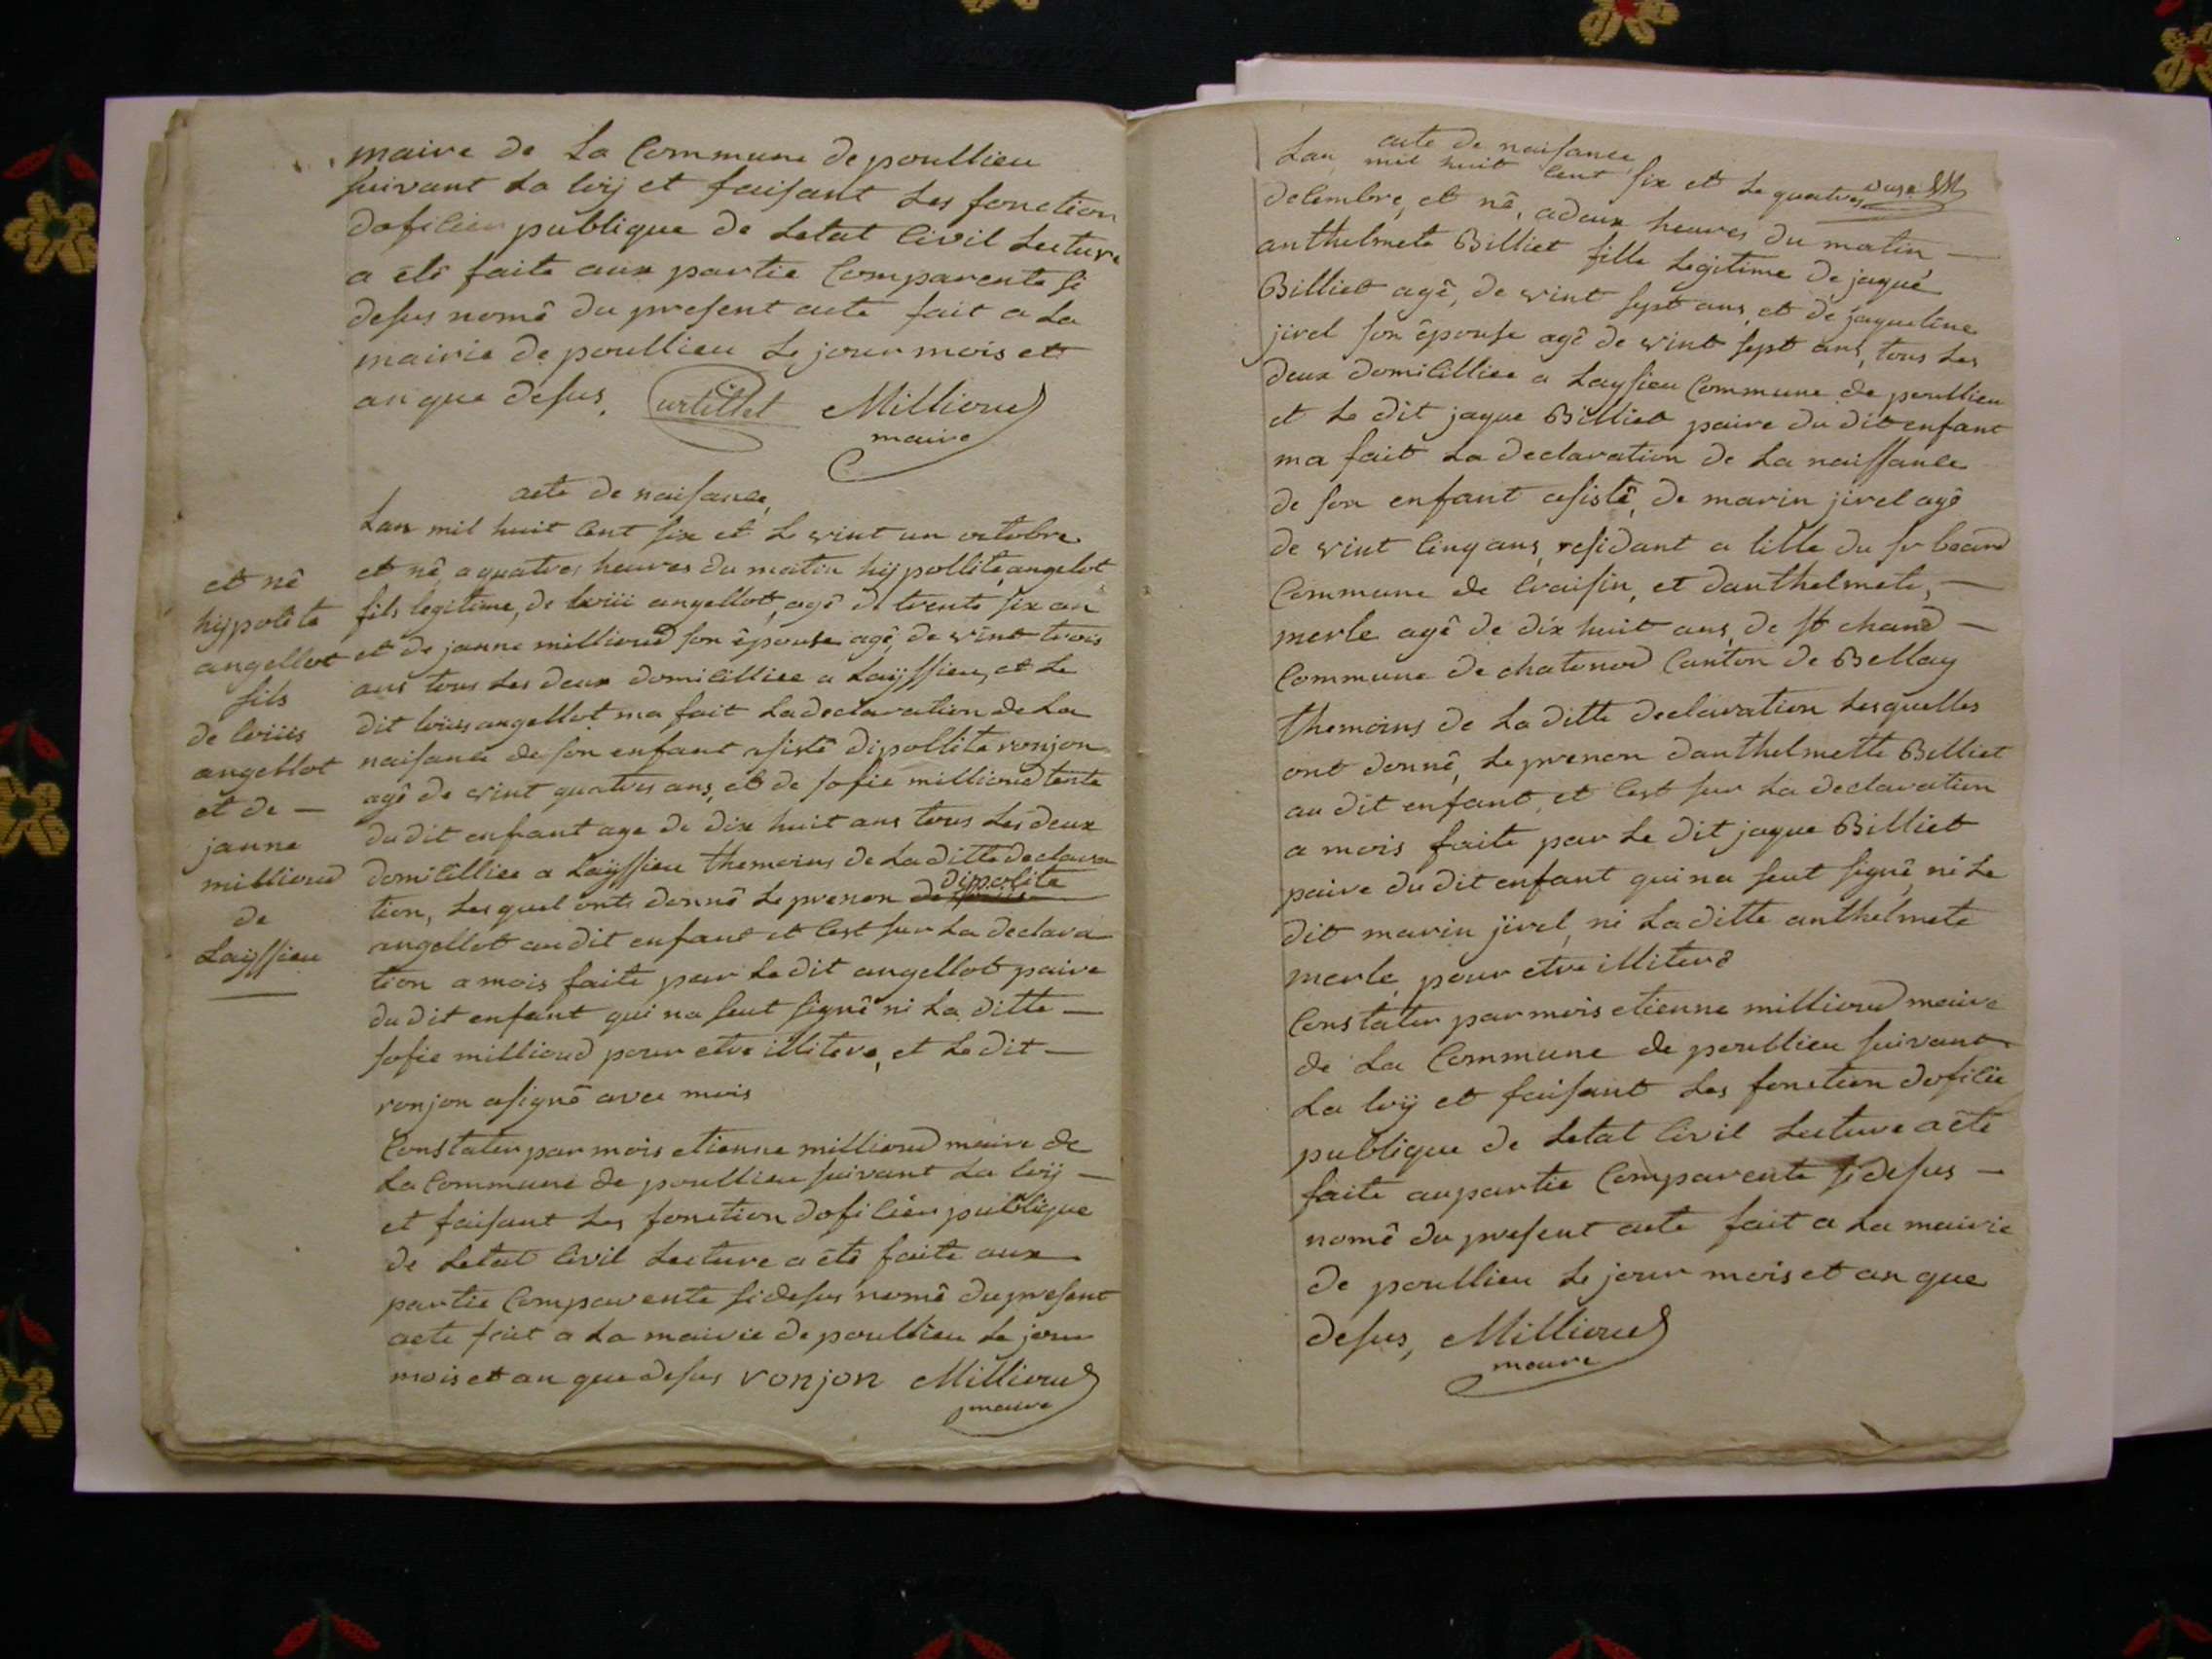 maire de La Commune de poullieu
suivant La loÿ et faisant Les fonction
dofilier publique de Letat Civil Lecture
a étê faite aux partie Comparente si
desus nomê du present acte fait a La
mairie de poullieu Le jour mois et
an que desus, Curtillet Millioud
maire
acte de naisance,
Lan mil huit Cent six et Le vint un octobre
et nê a quatres heures du matin hijpollite angelot
fils legitime, de loviii angellot, agê de trente six an
et de janne millioud son êpouse agê, de vint trois
ans tous Les deux domicilliee a Laÿssieu, et Le
dit loviis angellot ma fait La declaration de La
naisance de son enfant asistê dipollite ronjon
agê de vint quatres ans, et de sofie millioud tente
du dit enfant age de dix huit ans tous Les deux
domicilliee a Laÿssieu themoins de La ditte declara
dipolite
tion, Les quel onts donnê Le prenon
angellot au dit enfant et Cest sur La declara
tion a mois faite par Le dit angellot paire
du dit enfant qui na seut signê ni La ditte —
sofie millioud pour etre illitere, et Le dit —
ronjon a signê avec mois
Constater par mois etienne millioud maire de
La Commune de poullieu suivant La loÿ —
et faisant Les fonction dofilier publique
de Letat Civil Lecture a êtê faite aux
partie Comparente si desus nomê du present
acte fait a La mairie de poullieu Le jour
mois et an que desus ronjon Millioud
maire
et nê
hijpolite
angellot
fils
de loviis
angellot
et de —
janne
millioud
de
Laÿssieu
acte de naisance,
Lan mil huit Cent six et Le quatres
delembre, et nê, a deux heures du matin —
anthelmete Billiet fille Legitime de jaque
Billiet agê, de vint sept ans, et de jaqueline
jirel son êpouse agê de vint sept ans, tous Les
deux domicilliee a Laysieu Commune de poullieu
et Le dit jaque Billiet paire du dit enfant
ma fait La declaration de La naissance
de son enfant asistê, de marin jirel agê
de vint Cinq ans, residant a lille du
Commune de Craisin, et danthelmete, —
merle agê de dix huit ans, de st chand —
Commune de chatonod Canton de Bellay
themoins de La ditte declaration Lesquelles
ont donnê, Le prenon danthelmette Billiet
au dit enfant, et Cest sur La declaration
a mois faite par Le dit jaque Billiet
paire du dit enfant qui na seut signê, ni Le
dit marin jirel, ni La ditte anthelmete
merle, pour etre illiterê
Constater par mois etienne millioud maire
de La Commune de poullieu suivant
La loÿ et faisant Les fonction dofilie
publique de Letat Civil Lecture a êtê
faite au partie Comparente si desus —
nomê du present acte fait a La mairie
de poullieu Le jour mois et an que
desus, Millioud
maire